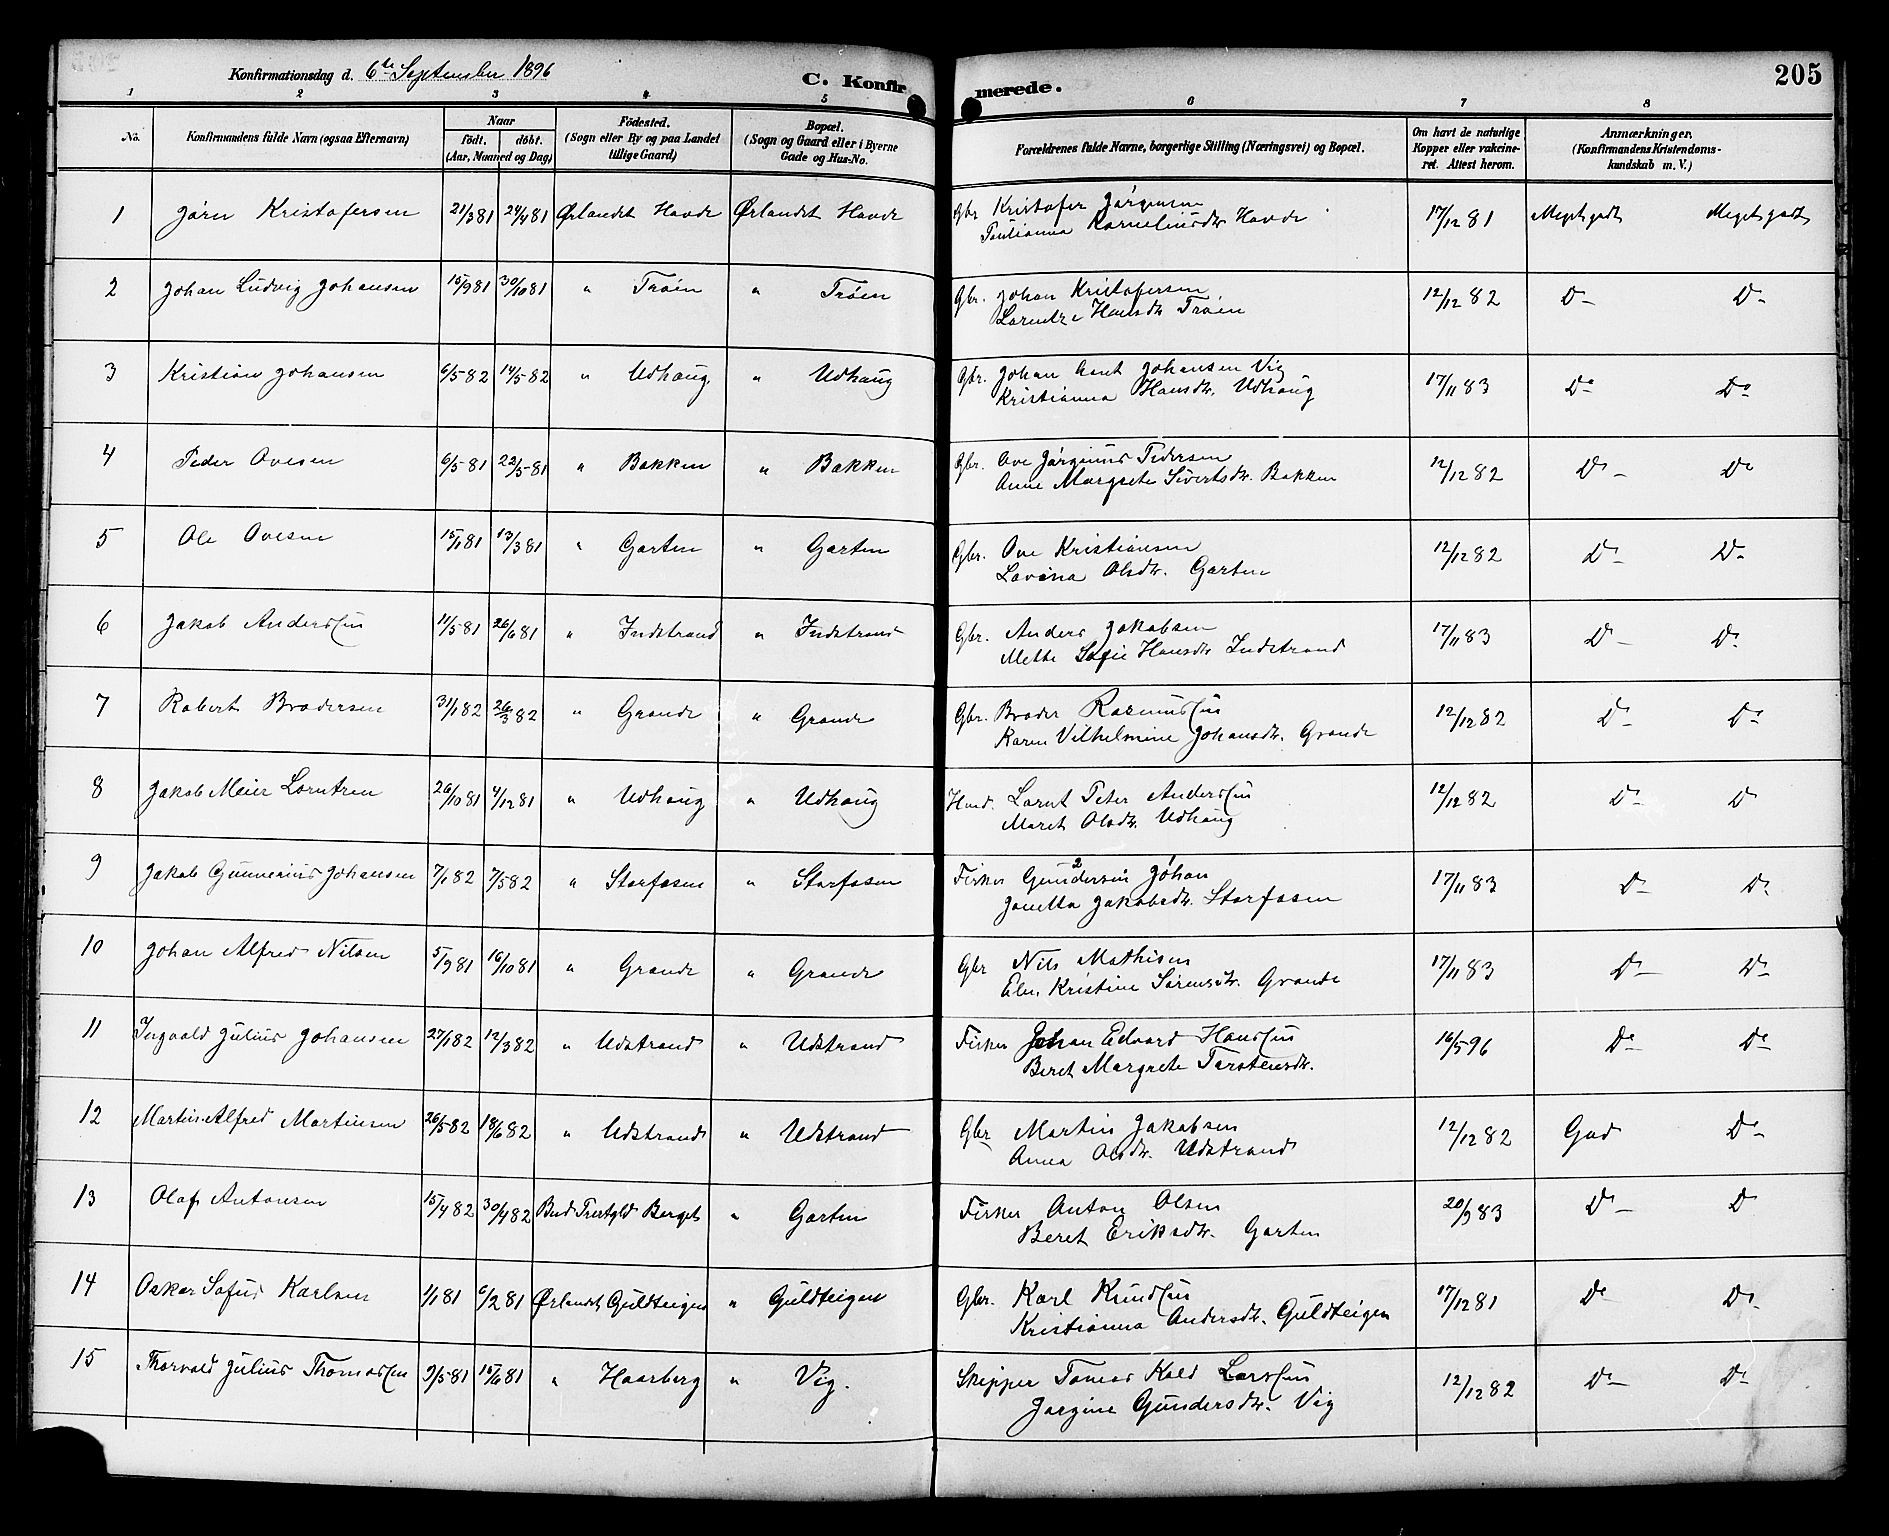 Konfirmationsdag d. 6te September 1896 C. Konfirmerede. 205
1 2 3 4 5 6 7 8
No. Konfirmandens fulde Navn (ogsaa Efternavn) Naar födt. döbt. (Aar, Maaned og Dag) Födested. (Sogn eller By og paa Landet tillige Gaard) Bopæl. (Sogn og Gaard eller i Byerne Gade og Hus-No. Forældrenes fulde Navne, borgerlige Stilling (Næringsvei) og Bopæl. Om havt de naturlige Kopper eller vakcineret. Attest herom. Anmærkninger, (Konfirmandens Kristendomskundskab m. V.)
1 Jörn Kristofersen 21/3 81 24/4 81 Ørlandet Hovde Ørlandet Hovde Gbr Kristofer Jörgensen 17/12 81 Meget godt Meget godt
Paulianna Korneliusdtr Hovde
2 Johan Ludvig Johansen 15/9 81 30/10 81 " Tröen " Tröen Gbr. Johan Kristofersen 12/12 82 Do Do
Lorentze Hansdtr Tröen
3 Kristian Johansen 6/5 82 14/5 82 " Udhaug " Udhaug Gbr. Johan Arnt Johansen Vig 17/11 83 Do Do
Kristianna Hansdtr. Udhaug
4 Peder Ovesen 6/5 81 22/5 81 " Bakken " Bakken Gbr. Ove Jörginus Pedersen 12/12 82 Do Do
Anne Margrete Sivertsdtr. Bakken
5 Ole Ovesen 15/1 81 13/3 81 " Garten " Garten Gbr. Ove Kristiansen 12/12 82 Do Do
Lovina Olsdtr. Garten
6 Jakob Anderssen 11/5 81 26/6 81 " Indstrand " Indstrand Gbr. Anders Jakobsen 17/11 83 Do Do
Mette Sofie Hansdtr Indstrand
7 Robert Brodersen 31/1 82 26/3 82 " Grande " Grande Gbr. Broder Rasmussen 12/12 82 Do Do
Karen Vilhelmine Johansdtr. Grande
8 Jakob Meier Lorntsen 26/10 81 4/12 81 " Udhaug " Udhaug Lornt Peter Anderssen 12/12 82 Do D
Maret Olsdtr. Udhaug
9 Jakob Gunnerius Johansen 7/1 82 7/5 82 " Storfosen " Storfosen Fisker Gundersen Johan 17/11 83 Do Do
Janetta Jakobsdtr. Storfosen
10 Johan Alfred Nilsen 5/9 81 16/10 81 " Grande " Grande Gbr Nils Mathisen 17/11 83 Do Do
Elen Kristine Sörensdtr. Grande
11 Ingvald Julius Johansen 27/1 82 12/3 82 " Udstrand " Udstrand Fisker Johan Edvard Hanssen 16/5 96 Do Do
Beret Margrete Torstensdtr.
12 Martin Alfred Martinsen 26/5 82 18/6 82 " Udstrand " Udstrand Gbr Martin Jakobsen 12/12 82 God Do
Anna Olsdtr. Udstrand
13 Olaf Antonsen 15/4 82 30/4 82 Berget " Garten Fisker Anton Olsen 20/9 83 Do D
Beret Eriksdtr. Garten
14 Oskar Sofus Karlsen 1/1 81 6/2 81 Ørlandet Guldteigen " Guldteigen Gbr. Karl Knudssen 17/12 81 Do Do
Kristianna Andersdtr. Guldteigen
15 Thorvald Julius Thomassen 9/5 81 15/6 81 " Haarberg " Vig. Skipper Tomas Kold Larssen 12/12 82 Do Do
Jörgine Gundersdtr. Vig